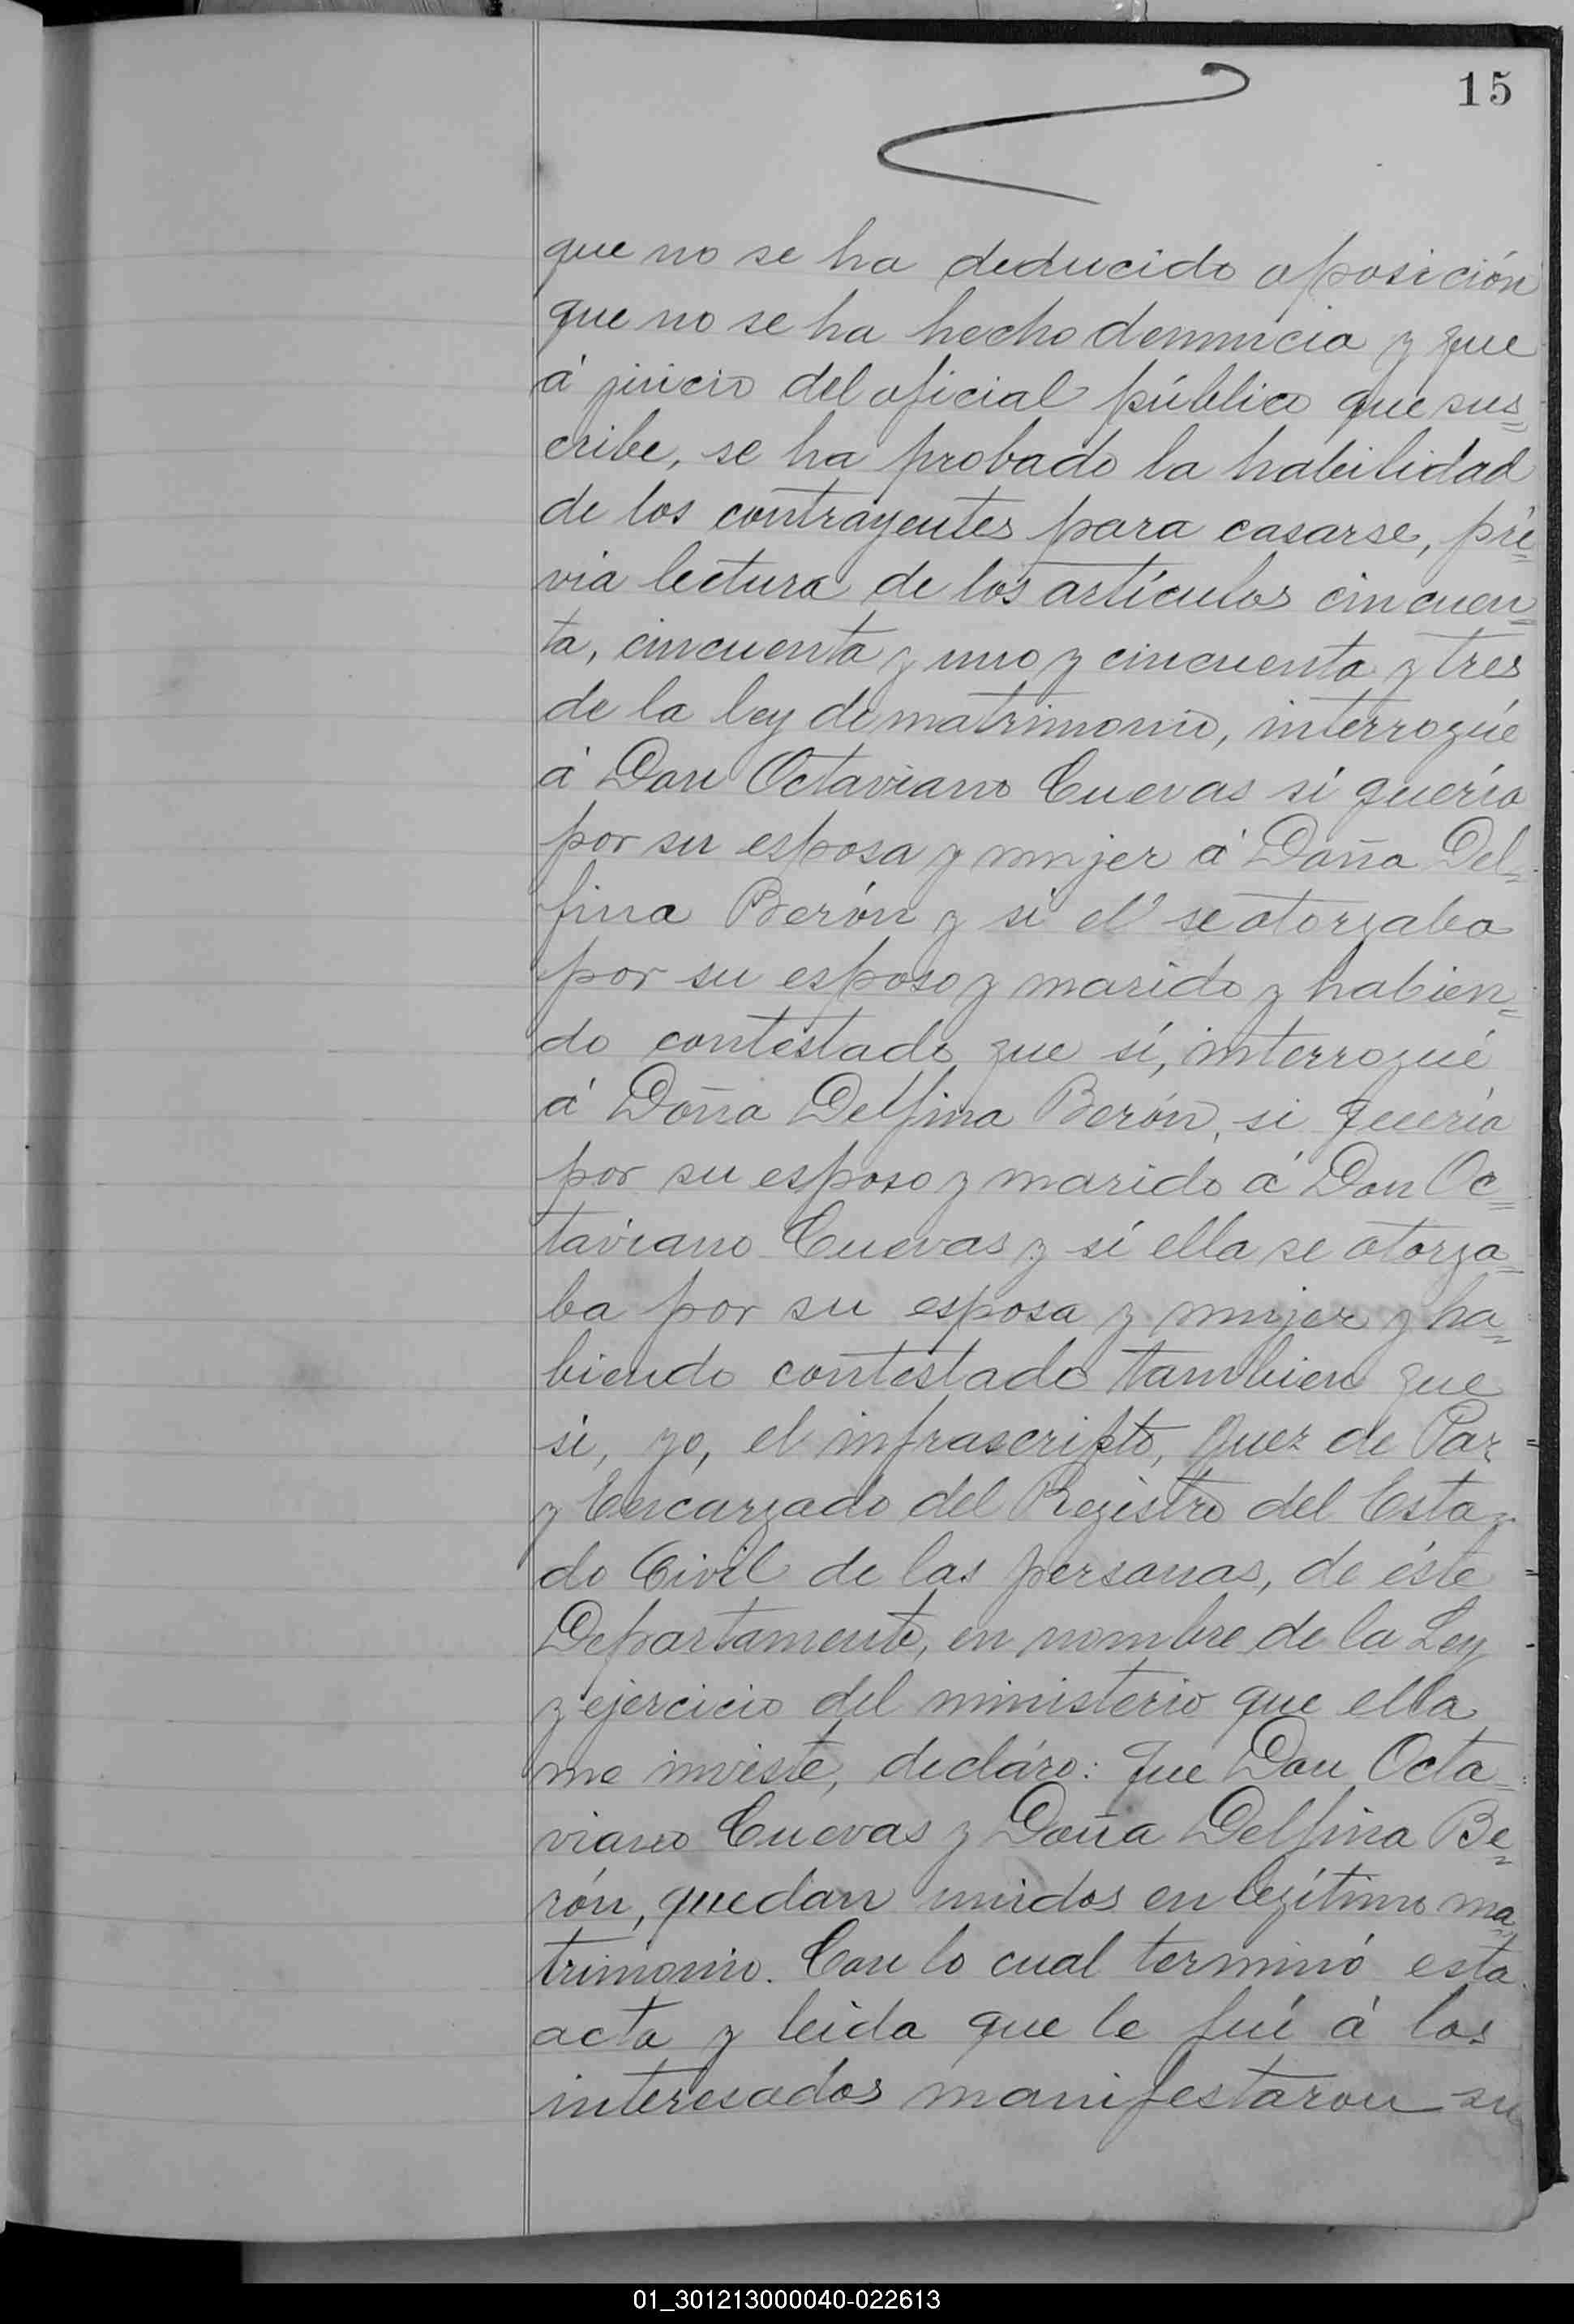 15
que no se ha deducido oposición
que no se ha hecho denuncia y que
á juicio del oficial público que sus=
cribe, se ha probado la habilidad
de los contrayentes para casarse, pré=
via lectura de los artículos cincuen=
ta, cincuenta y uno y cincuenta y tres
de la ley de matrimonio, interrogué
á Don Octaviano Cuevas si quería
por su esposa y mujer á Doña Del=
fina Berón y si él se otorgaba
por su esposo y marido y habien=
do contestado que sí, interrogué
á Doña Delfina Berón, si quería
por su esposo y marido á Don Oc=
taviano Cuevas y si ella se otorga=
ba por su esposa y mujer y ha=
biendo contestado tambien que
si, yo, el infrascripto, Juez de Paz
y Encargado del Registro del Esta=
do Civil de las personas, de éste
Departamento, en nombre de la Ley
y ejercicio del ministerio que ella
me inviste, decláro: que Don Octa=
viano Cuevas y Doña Delfina Be=
rón, quedan unidos en legítimo ma=
trimonio. Con lo cual terminó esta
acta y leida que le fué á los
interesados manifestaron su
01_301213000040-022613